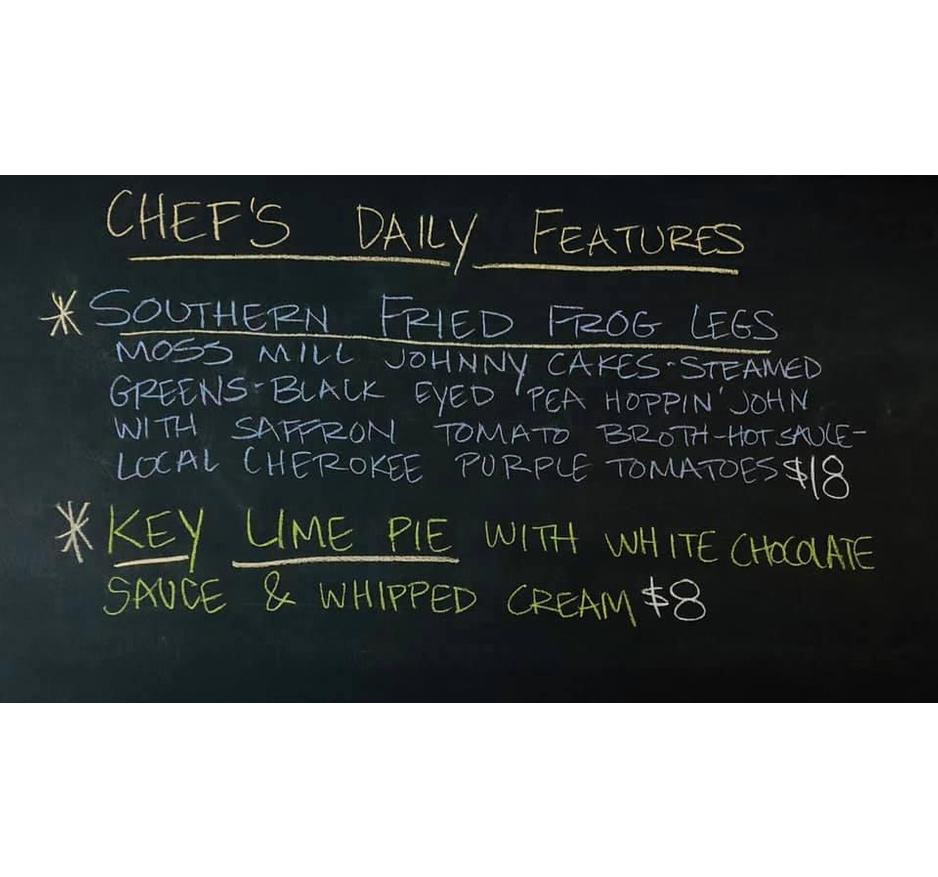 CHEF'S DAILY FEATURES
* SOUTHERN FRIED FROG LEGS
MOSS MILL JOHNNY CAKES-STEAMED
GREENS-BLACK EYED PEA HOPPIN' JOHN
WITH SAFFRON TOMATO BROTH-HOT SAUCE-
LOCAL CHEROKEE PURPLE TOMATOES $18
* KEY LIME PIE WITH WHITE CHOCOLATE
SAUCE & WHIPPED CREAM $8